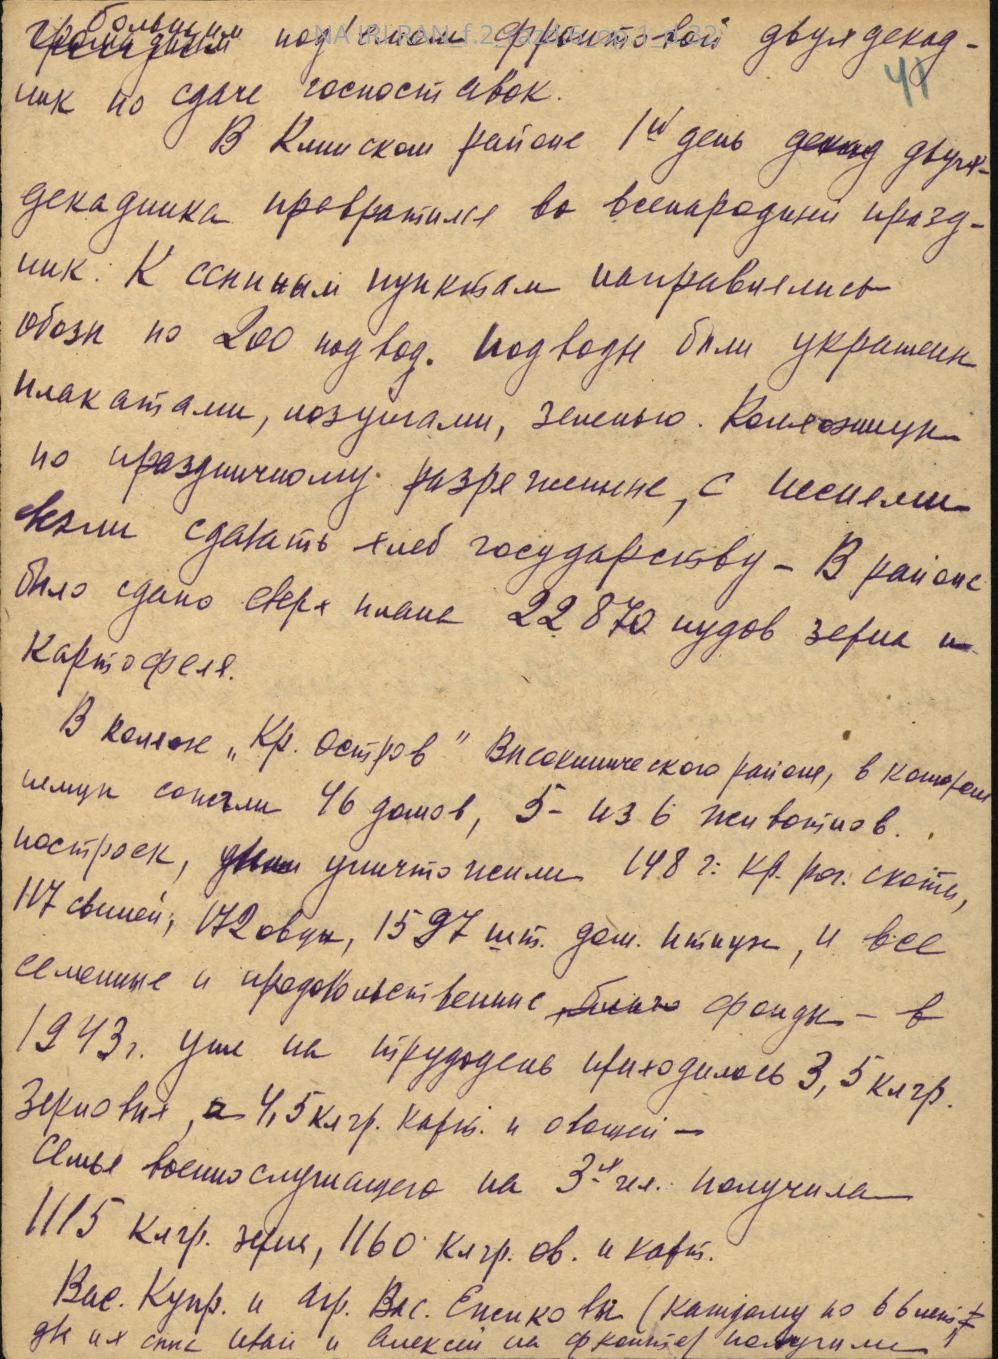 большим
громадным под'емом фронтовой двухдекад-
ник по сдаче госпоставок.
41
В Клинском районе 1й день декад двух-
декадника превратился во всенародный празд-
ник. К ссыпным пунктам направлялись
обозы по 200 подвод. Подводы были украшены
плакатами, лозунгами, зеленью. Колхозники
по праздничному разряженные, с песнями
везли сдавать хлеб государству – В районе
было сдано сверх плана 22870 пудов зерна и
картофеля.
В колхозе „Кр. Остров" Высокиничского района, в котором
немцы сожгли 46 домов, 5 из 6 животнов.
построек, уничтожили 148 г. кр. рог. скота,
117 свиней, 172 овцы, 1597 шт. дом. птицы, и все
семенные и продовольственные было фонды – в
1943 г. уже на трудодень приходилось 3,5 клгр.
зерновых, а 4,5 клгр. карт. и овощей –
Семья военнослужащего на 3х чел. получила
1115 клгр. зерна, 1160 клгр. ов. и карт.
Вас. Купр. и Агр. Вас. (каждому по 66 лет,
их сыны Иван и Алексей на фронте) получили